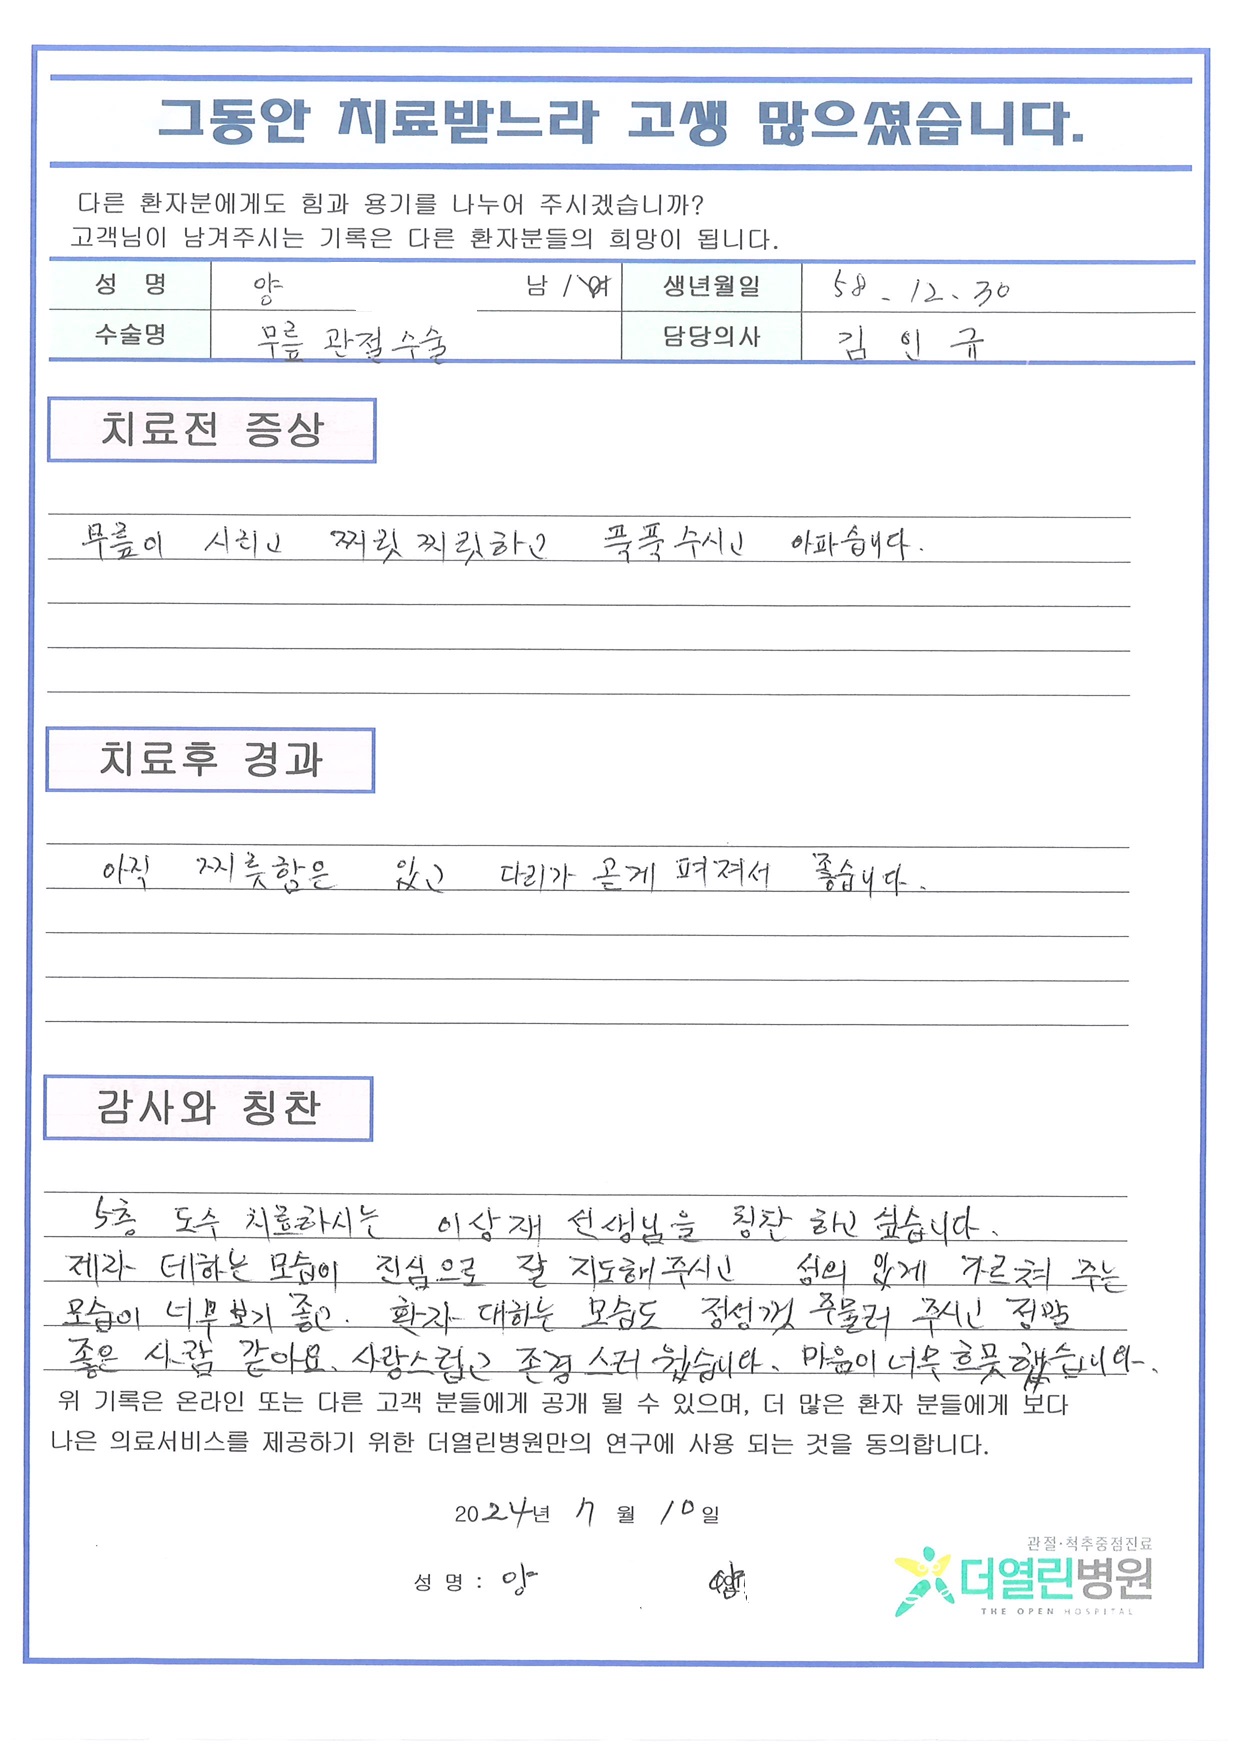 그동안 치료받느라 고생 많으셨습니다.
다른 환자분에게도 힘과 용기를 나누어 주시겠습니까?
고객님이 남겨주시는 기록은 다른 환자분들의 희망이 됩니다.
성 명 양 남 / 여 생년월일 58. 12. 30
수술명 무릎 관절수술 담당의사 김 인 규
치료전 증상
무릎이 시리고 찌릿찌릿하고 푹푹 수시고 아파습니다.
치료후 경과
아직 찌릇함은 있고 다리가 곧게 펴져서 좋습니다.
감사와 칭찬
5층 도수 치료하시는 이상재 선생님을 칭찬 하고 싶습니다.
제라 데하는 모습이 진심으로 잘 지도해 주시고 섬의 있게 가르쳐 주는
모습이 너무 보기 좋고. 환자 대하는 모습도 정성껏 주물러 주시고 정말
좋은 사람 같아요. 사랑스럽고 존경 스러 웠습니다. 마음이 너무 흐뭇했습니다.
위 기록은 온라인 또는 다른 고객 분들에게 공개 될 수 있으며, 더 많은 환자 분들에게 보다
나은 의료서비스를 제공하기 위한 더열린병원만의 연구에 사용 되는 것을 동의합니다.
2024년 7월 10일
성 명 : 양
관절·척추중점진료
더열린병원
THE OPEN HOSPITAL